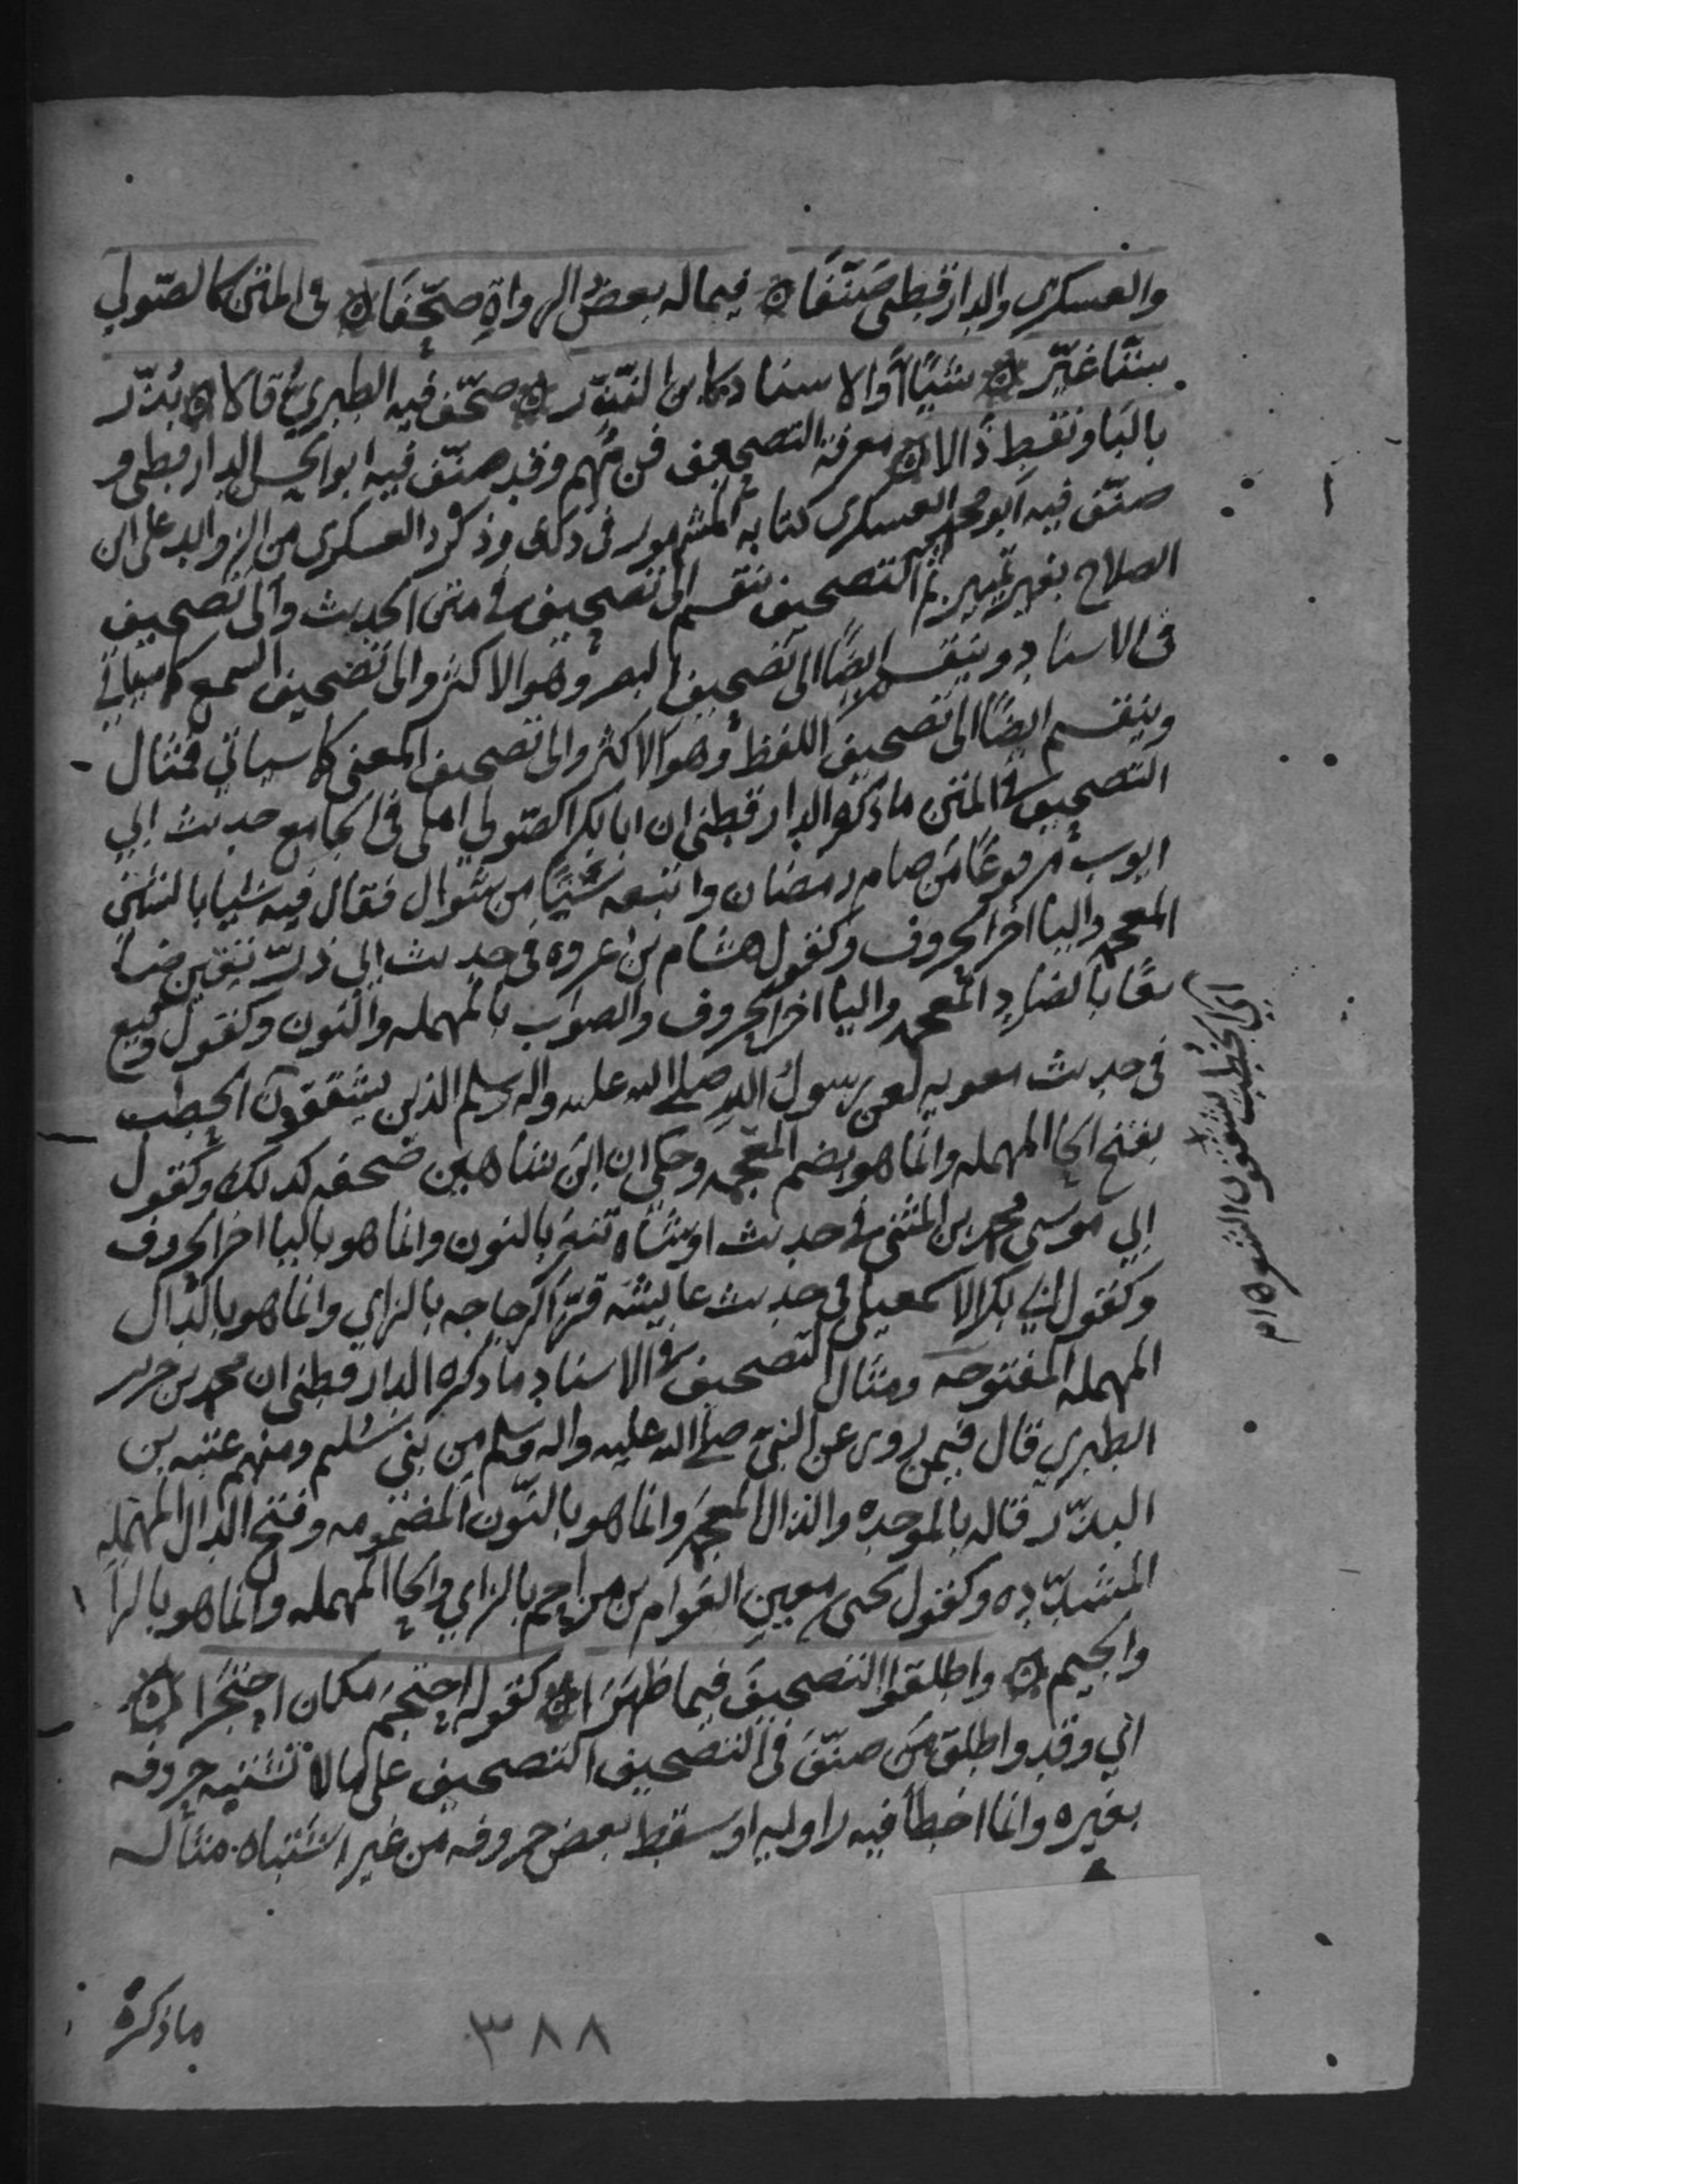 والعسكري والدارقطني صَنّفَا ۞ فيما له بعضُ الرواةِ صحّفَا ۞ في المتن كالصّولي
ستًّا غيّر ۞ شيًا أو الاسناد كابن النّدّر ۞ صحّف فيه الطبريُّ قالا ۞ بُذّر
بالبا ونقط ذالا ۞ معرفة التصحيف فن مُهم وقد صنّف فيه ابو الحسن الدارقطني و
صنّف فيه ابو محمد العسكري كتابه المشهور في ذلك وذكر العسكري من الزوايد على ابن
الصلاح بغير تمييز ثم التصحيف ينقسم الى تصحيف في متن الحديث والى تصحيف
في الاسناد وينقسم ايضًا الى تصحيف البصر وهو الاكثر والى تصحيف السمع كما سياتي
وينقسم ايضًا الى تصحيف اللفظ وهو الاكثر والى تصحيف المعنى كما سياتي فمثال
التصحيف في المتن ما ذكره الدارقطني ان ابا بكر الصّولي املى في الجامع حديث ابي
ايوب مرفوعًا من صام رمضان واتبعه ستًا من شوال فقال فيه شيا بالشين
المعجمه واليا اخر الحروف وكقول هشام بن عروه في حديث ابي ذرّ تعين ضا
يعًا بالضاد المعجمه واليا اخر الحروف والصواب بالمهمله والنون وكقول وكيع
في حديث معويه لعن رسول الله صلى الله عليه واله وسلم الذين يشققون الحطب
بفتح الحا المهمله وانما هو بضم المعجمه وحكي ان ابن شاهين صحفه كذلك وكقول
ابي موسى محمد بن المثنى في حديث او شاه تنعر بالنون وانما هو باليا اخر الحروف
وكقول ابي بكر الاسمعيلي في حديث عايشه قرّ الزجاجه بالزاي وانما هو بالدال
المهمله المفتوحه ومثال التصحيف في الاسناد ما ذكره الدارقطني ان محمد بن جرير
الطبري قال فيمن روى عن النبي صلى الله عليه واله وسلم من بني سُليم ومنهم عتبه بن
البذّر قاله بالموحده والذال المعجمه وانما هو بالنّون المضمومه وفتح الدال المهمله
المشدّده وكقول يحيى بن معين العوام بن مزاحم بالزاي والحا المهمله وانما هو بالرا
والجيم ۞ واطلقوا التصحيفَ فيما ظهرَا ۞ كقوله احتجم مكان احتجرا ۞
اي وقد اطلق من صنّف في التصحيف التصحيف على ما لا تشتبه حروفه
بغيره وانما اخطا فيه راويه او سقط بعض حروفه من غير اشتباه مثاله
ما ذكره
٣٨٨
اي الخطب تشقيق الشعر ١٥م